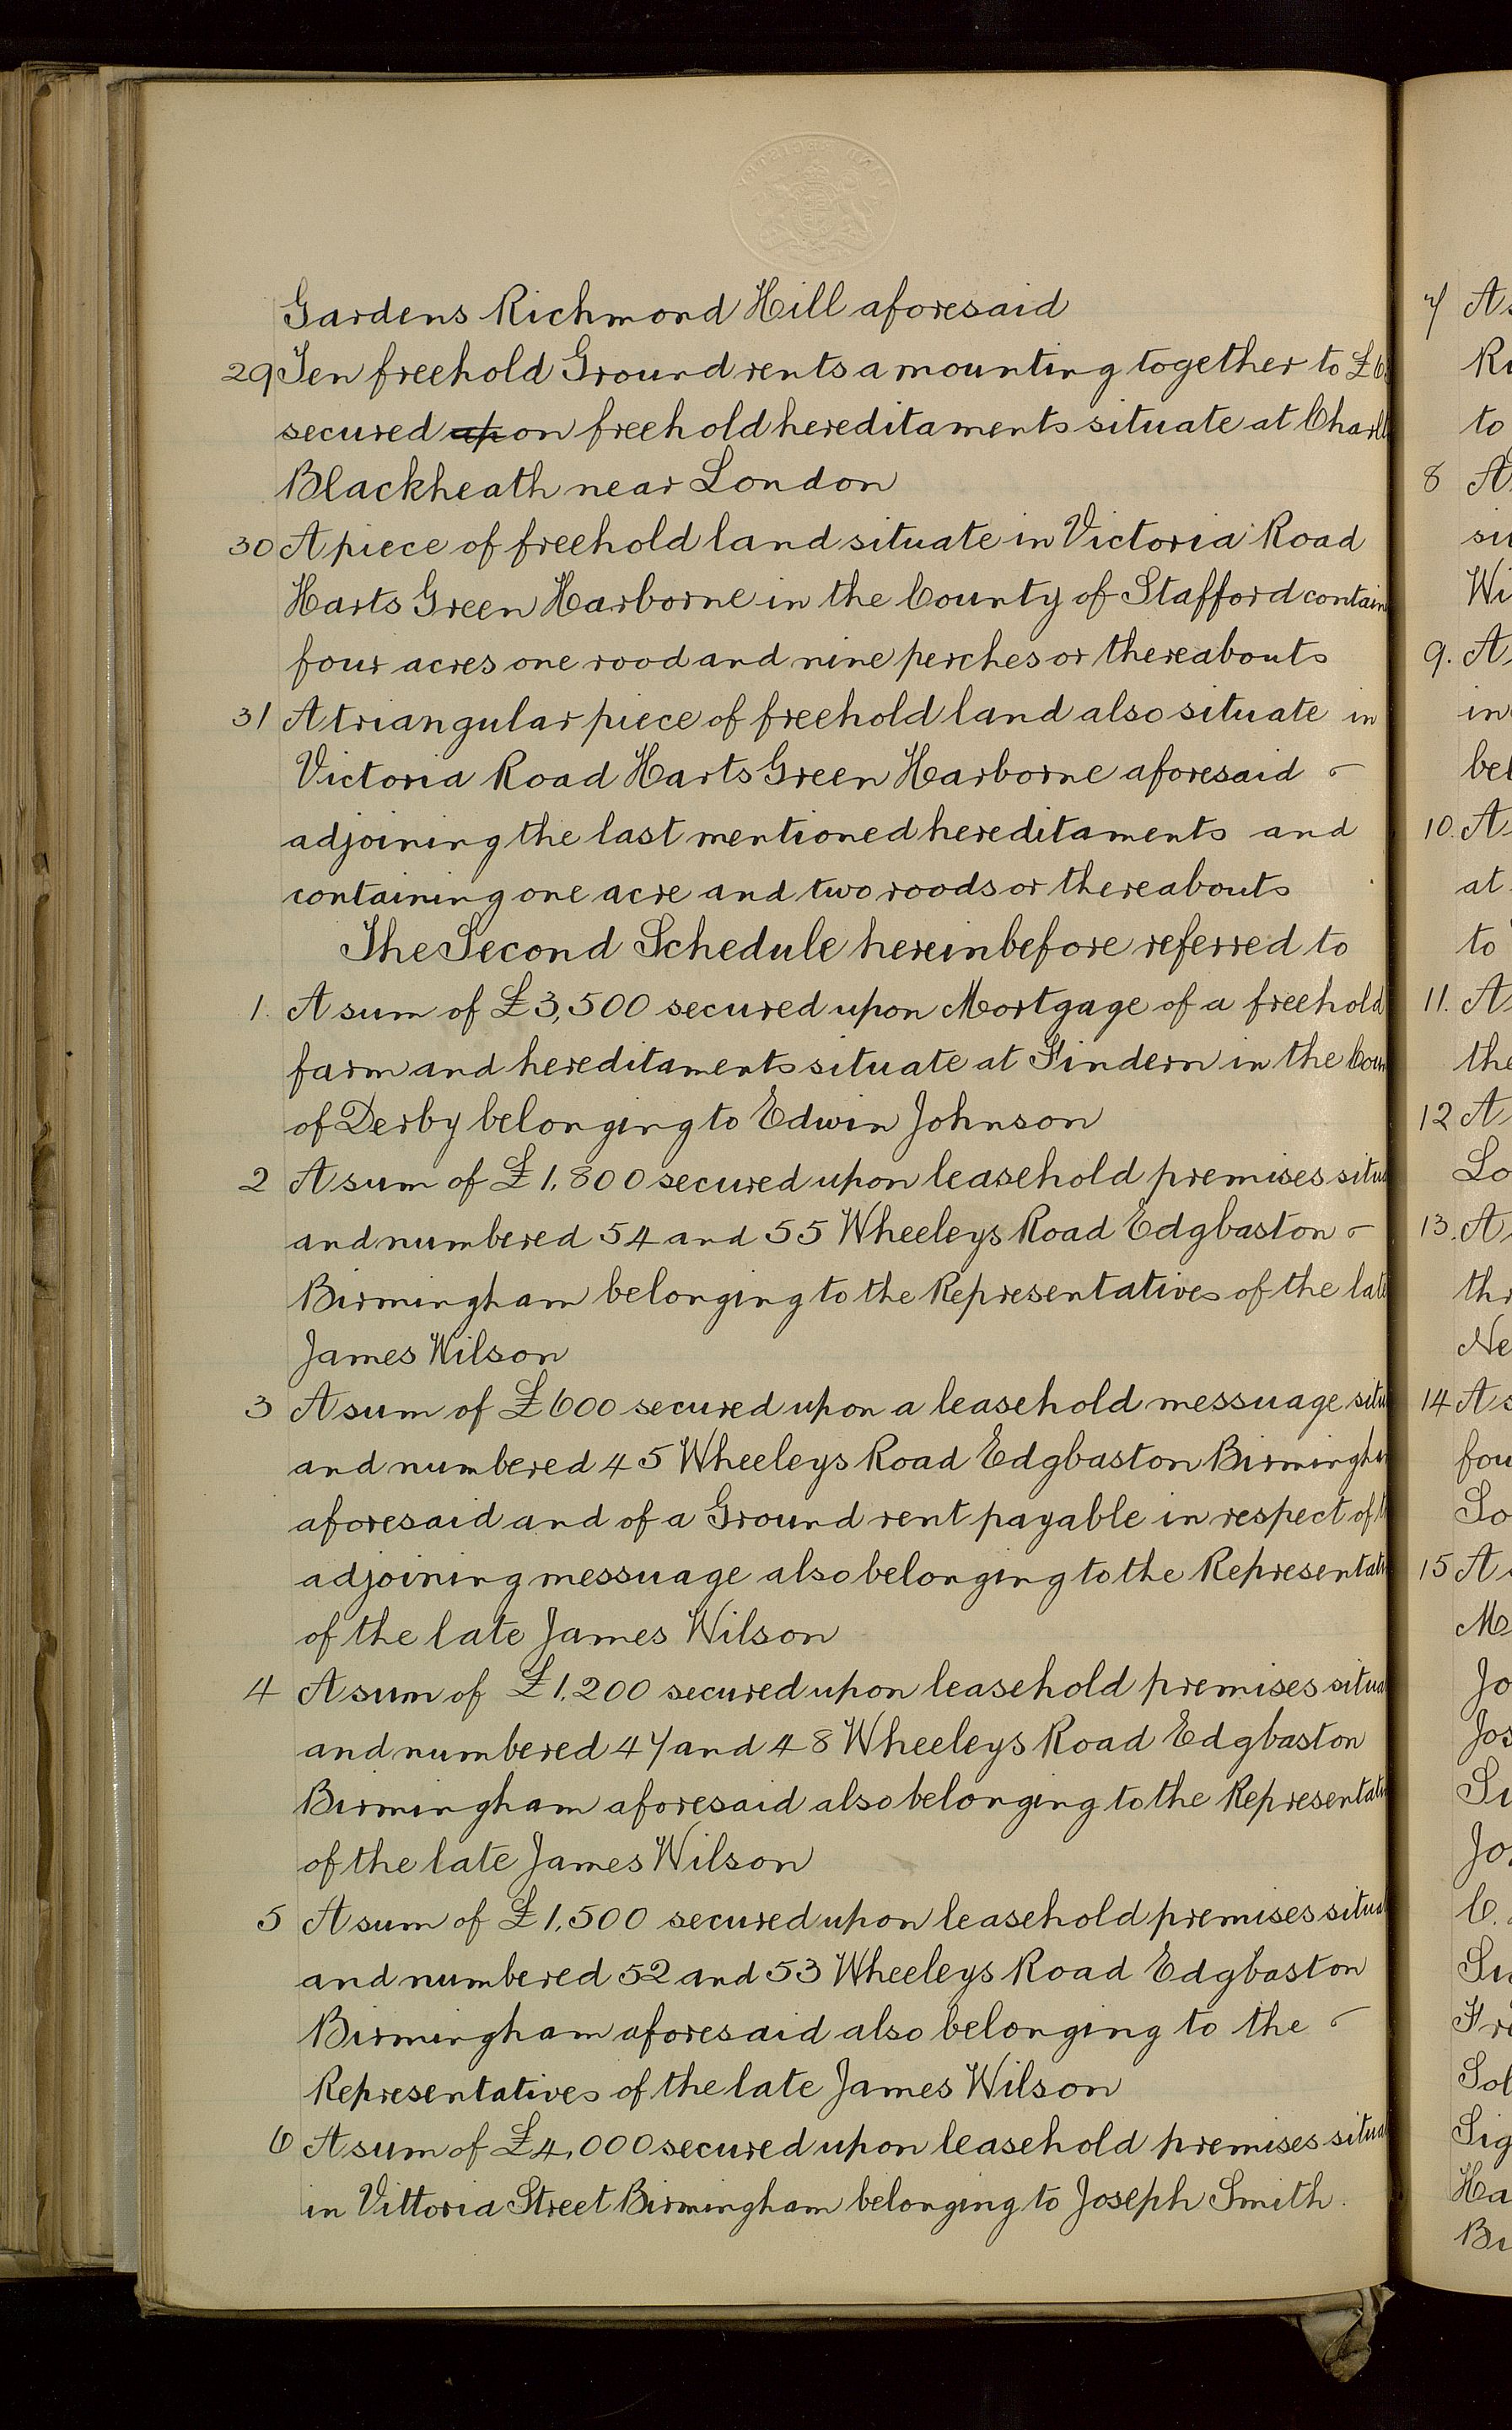 Gardens Richmond Hill aforesaid
29 Ten freehold Ground rents amounting together to £6
secured up on freehold hereditaments situate at
Blackheath near London
30 A piece of freehold land situate in Victoria Road
Harts Green Harborne in the County of Stafford contain
four acres one rood and nine perches or thereabouts
31 A triangular piece of freehold land also situate in
Victoria Road Harts Green Harborne aforesaid
adjoining the last mentioned hereditaments and
containing one acre and two roods or thereabouts
The Second Schedule hereinbefore referred to
1. A sum of £3,500 secured upon Mortgage of a freehold
farm and hereditaments situate at Findern in the Coun
of Derby belonging to Edwin Johnson
2 A sum of £1,800 secured upon leasehold premises situa
and numbered 54 and 55 Wheeleys Road Edgbaston
Birmingham belonging to the Representatives of the late
James Wilson
3 A sum of £600 secured upon a leasehold messuage situ
and numbered 45 Wheeleys Road Edgbaston Birmingha
aforesaid and of a Ground rent payable in respect of th
adjoining messuage also belonging to the Representati
of the late James Wilson
4 A sum of £1,200 secured upon leasehold premises situa
and numbered 47 and 48 Wheeleys Road Edgbaston
Birmingham aforesaid also belonging to the Representati
of the late James Wilson
5 A sum of £1,500 secured upon leasehold premises situa
and numbered 52 and 53 Wheeleys Road Edgbaston
Birmingham aforesaid also belonging to the
Representatives of the late James Wilson
6 A sum of £4,000 secured upon leasehold premises situa
in Vittoria Street Birmingham belonging to Joseph Smith.
7 A
to
8 A
Wi
9. A
in
bel
10. A
at
to
11. A
the
12 A
Lo
13. A
thr
Ne
14 A s
fou
So
15 A
M
Jo
Jos
Jo
C.
Fre
Sol
Sig
Ha